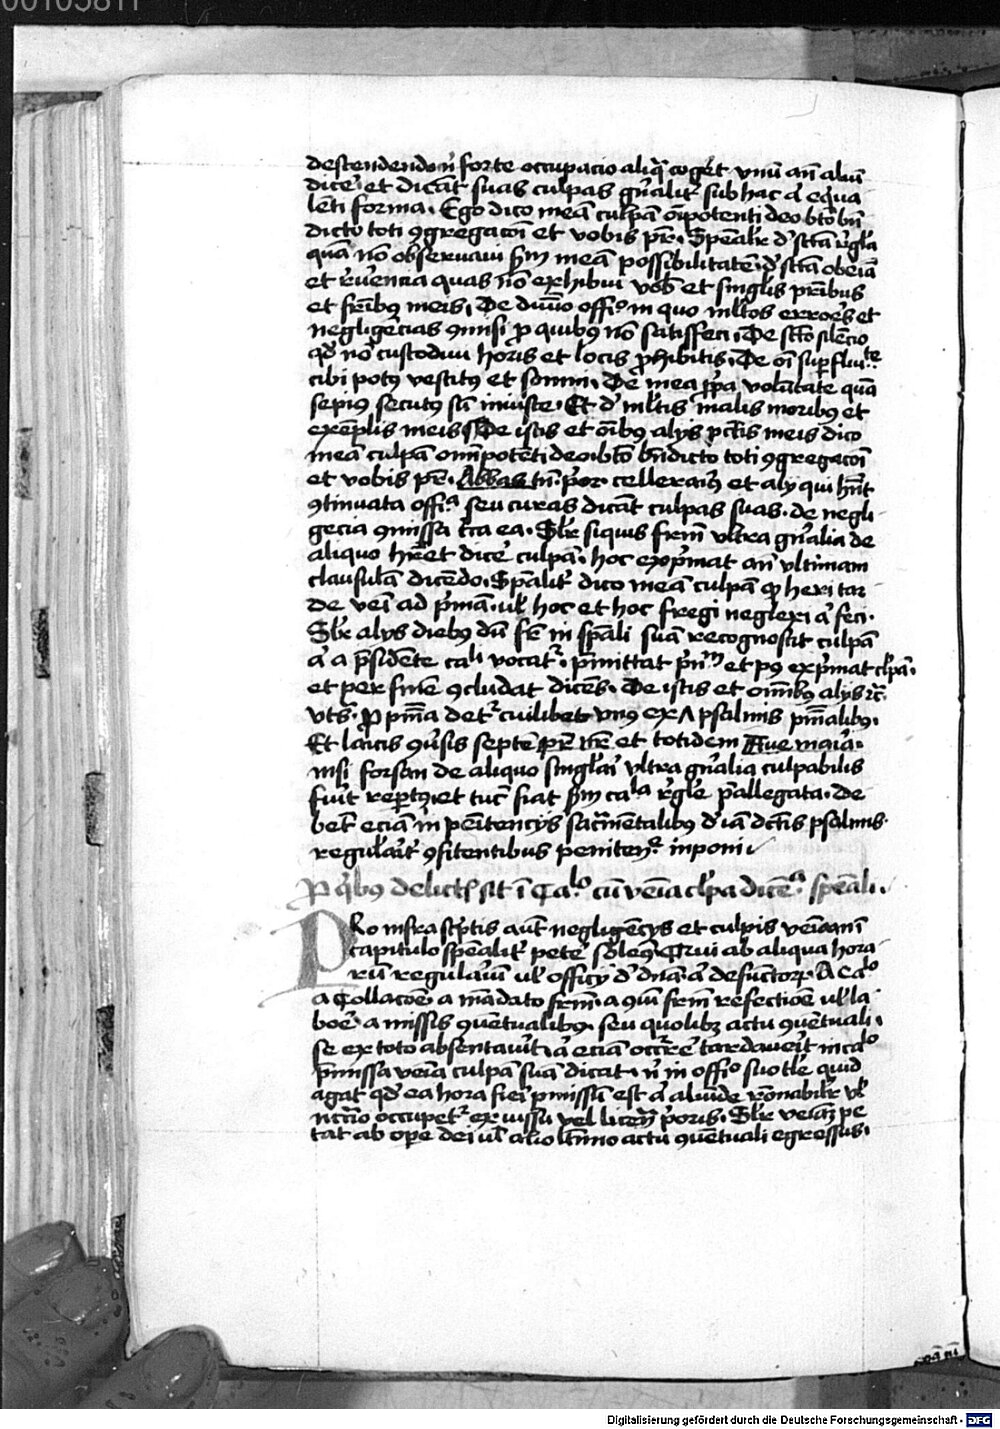 00105811
descendendo nͥ forte occupacio aliqͣ cogͤt vnū an̄ aliū
dicͤe et dicāt suas culpas gn̄alitͬ sub hac a͛ equa
lēti forma. Ego dico meā culpā oīpotenti deo bt̄o bn̄
dicto toti ꝯgregacōi et vobis pr̄. Sp̄ealr̄ d̓ sctā rͤgla
quā nō obseruaui sm̄ meā possibilitatē d̓ sctā obeīa
et rͤuerencia quas nō exhibui vob̄ et singlis pr̄ibus
et fr̄ibꝰ meis. De diuīo offͦ in quo ml̄tos erroͤs et
negligēcias ꝯmisi ꝓ quibꝰ nō satisfeci. De scto silēcio
qd̓ nō custodiui horis et locis ꝓhibitis. De oī suꝑfluitͭͤ
cibi potꝰ vestitꝰ et somni. De mea ꝓp̄a volūtate quā
sepiꝰ secutꝰ sū iniuste. Et d̓ ml̄tis malis moribꝰ et
exēplis meis De istis et oībꝰ alijs pctīs meis dico
meā culpā omīpotēti deo bt̄o bn̄dicto toti ꝯgregacōi
et vobis pr̄. Abbas tn̄. pͥor. celleraiꝰ et alij qui hn̄t
ꝯtinuata offͣ seu curas dicāt culpas suas. de negli
gēcia ꝯmissa cͥca ea. Slr̄ siquis frm̄ vltra gn̄alia de
aliquo hr̄et dicͤe culpā. hoc exp̄mat an̄ vltimam
clausulā dicēdo. Sp̄ealitͬ dico meā culpā qꝫ heri tar
de vēi ad p̄mā. ul̄ hoc et hoc fregi neglexi a͛ feci.
Slr̄ alijs diebꝰ dū fr̄ in sp̄eali suā recognoscit culpā
a͛ a p̄sidente caͣli vocatͬ. p̄mittat pn̄m et pꝰ exp̄mat cl̓pā.
et per finē ꝯcludat dicēs. De istis et omībꝰ alijs ⁊c̄
vts̄. ꝓ pnīa detͬ cuilibet vnꝰ ex psalmis pn̄ialibꝰ.
Et laicis ꝯuͤsis septē pr̄ nr̄ et totidem Aue maria.
nisi forsan de aliquo singlari vltra gn̄alia culpabilis
fuͤit repertꝰ et tūc fiat sm̄ caͣla rͤgle p̄allegata. De
bet eciā in penitencijs sacͣmentalibꝰ d̓ iā dctīs psalmis
regularitͬ ꝯfitentibus penitenͣ inponi
Pro qͥbꝰ delictis sit ī Caͦlo cū vēia cl̓pa dicēͣ sp̄eali.
PRo infrascͥptis aut̄ negligēcijs et culpis veīā in
capitulo sp̄ealitͬ petͤe solemꝰ Qui ab aliqua hora
rum regulariū ul̄ officij d̓ dn̄a a͛ defunctorꝫ. A Caͦlo
a Collacōe a mādato frm̄. a qͣm frm̄ refectiōe ul̄ la
bore a missis ꝯuētualibꝰ seu quolibꝫ actu ꝯuētuali.
se ex toto absentauͤit a͛ eciā occͬrͤe tardauͤit in caͦlo
p̄missa veīa culpā suā dicat. nͥ in offͦ suo tl̄e quid
agat qd̓ ea hora fieri p̄missū est a͛ aliūde rōnabilͥr ul̄
nccͥio occupetͬ ex iussu vel licen̄ pͥoris. Slr̄ veīaꝫ pe
tat ab opͤe dei ul̄ alio comīo actu ꝯuētuali egressus.
Digitalisierung gefördert durch die Deutsche Forschungsgemeinschaft - DFG